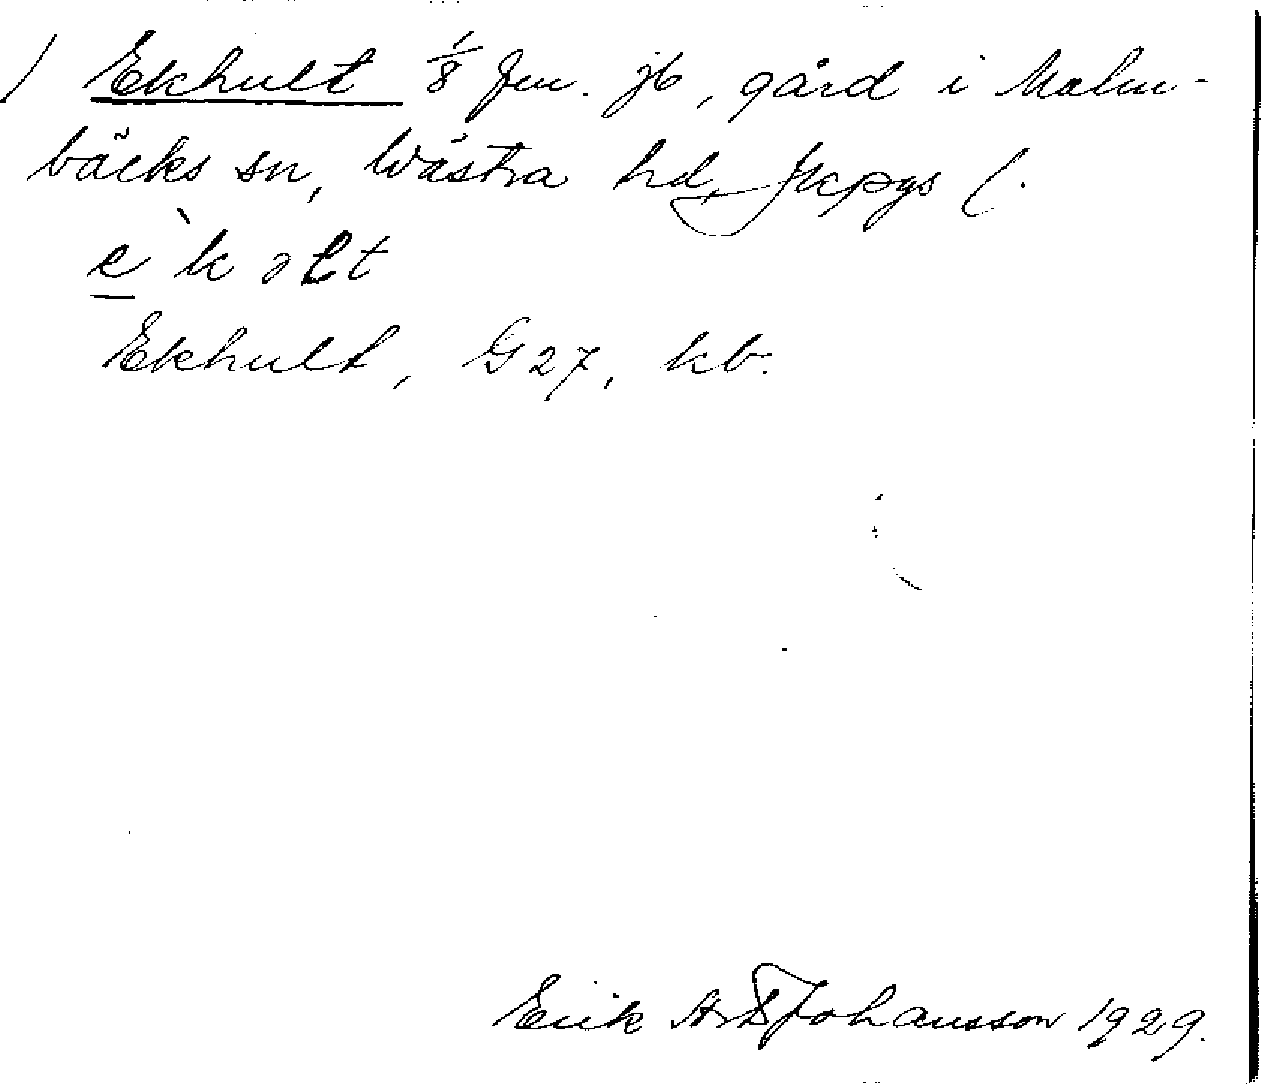 ) Ekhult 1/8 fm. jb, gård i Malm-
bäcks sn, Västra hd, Jkpgs l.
e ̀k ɔlt
Ekhult, G27, kb.
Erik Johansson 1929.